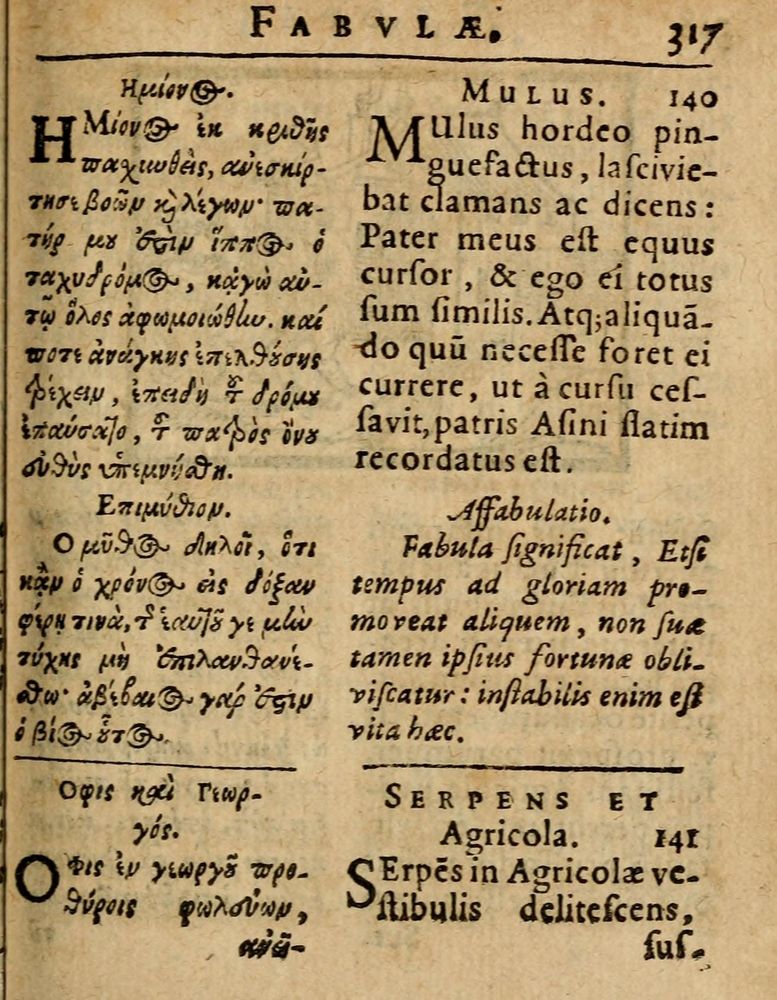 FABVLÆ. 317
Ημίονος.
ΗΜίονος ἐκ κριθῆς
παχιωθεὶς, ἀνεσκίρ-
τησε βοῶν καὶ λέγων· πα-
τήρ μου ἐστὶν ἵππος ὁ
ταχυδρόμος, κᾀγὼ αὐ-
τῷ ὅλος ἀφωμοιώθην. καί
ποτε ἀνάγκης ἐπελθούσης
τρέχειν, ἐπειδὴ τοῦ δρόμου
ἐπαύσατο, τοῦ πατρὸς ὄνου
εὐθὺς ὑπεμνήσθη.
Επιμύθιον.
Ο μῦθος δηλοῖ, ὅτι
κᾂν ὁ χρόνος εἰς δόξαν
φέρῃ τινὰ, τῆς ἑαυτοῦ γε μὲν
τύχης μὴ ἐπιλανθανέ-
σθω· ἀβέβαιος γάρ ἐστιν
ὁ βίος οὗτος.
Οφις καὶ Γεωρ-
γός.
ΟΦις ἐν γεωργοῦ προ-
θύροις φωλεύων,
MULUS. 140
MUlus hordeo pin-
guefactus, laſcivie-
bat clamans ac dicens:
Pater meus eſt equus
curſor, & ego ei totus
ſum ſimilis. Atq; aliquā-
do quū neceſſe foret ei
currere, ut à curſu ceſ-
ſavit, patris Aſini ſtatim
recordatus eſt.
Affabulatio.
Fabula ſignificat, Etſi
tempus ad gloriam pro-
moveat aliquem, non ſuæ
tamen ipſius fortunæ obli-
viſcatur: inſtabilis enim eſt
vita hæc.
SERPENS ET
Agricola. 141
SErpēs in Agricolæ ve-
ſtibulis deliteſcens,
ſuſ-